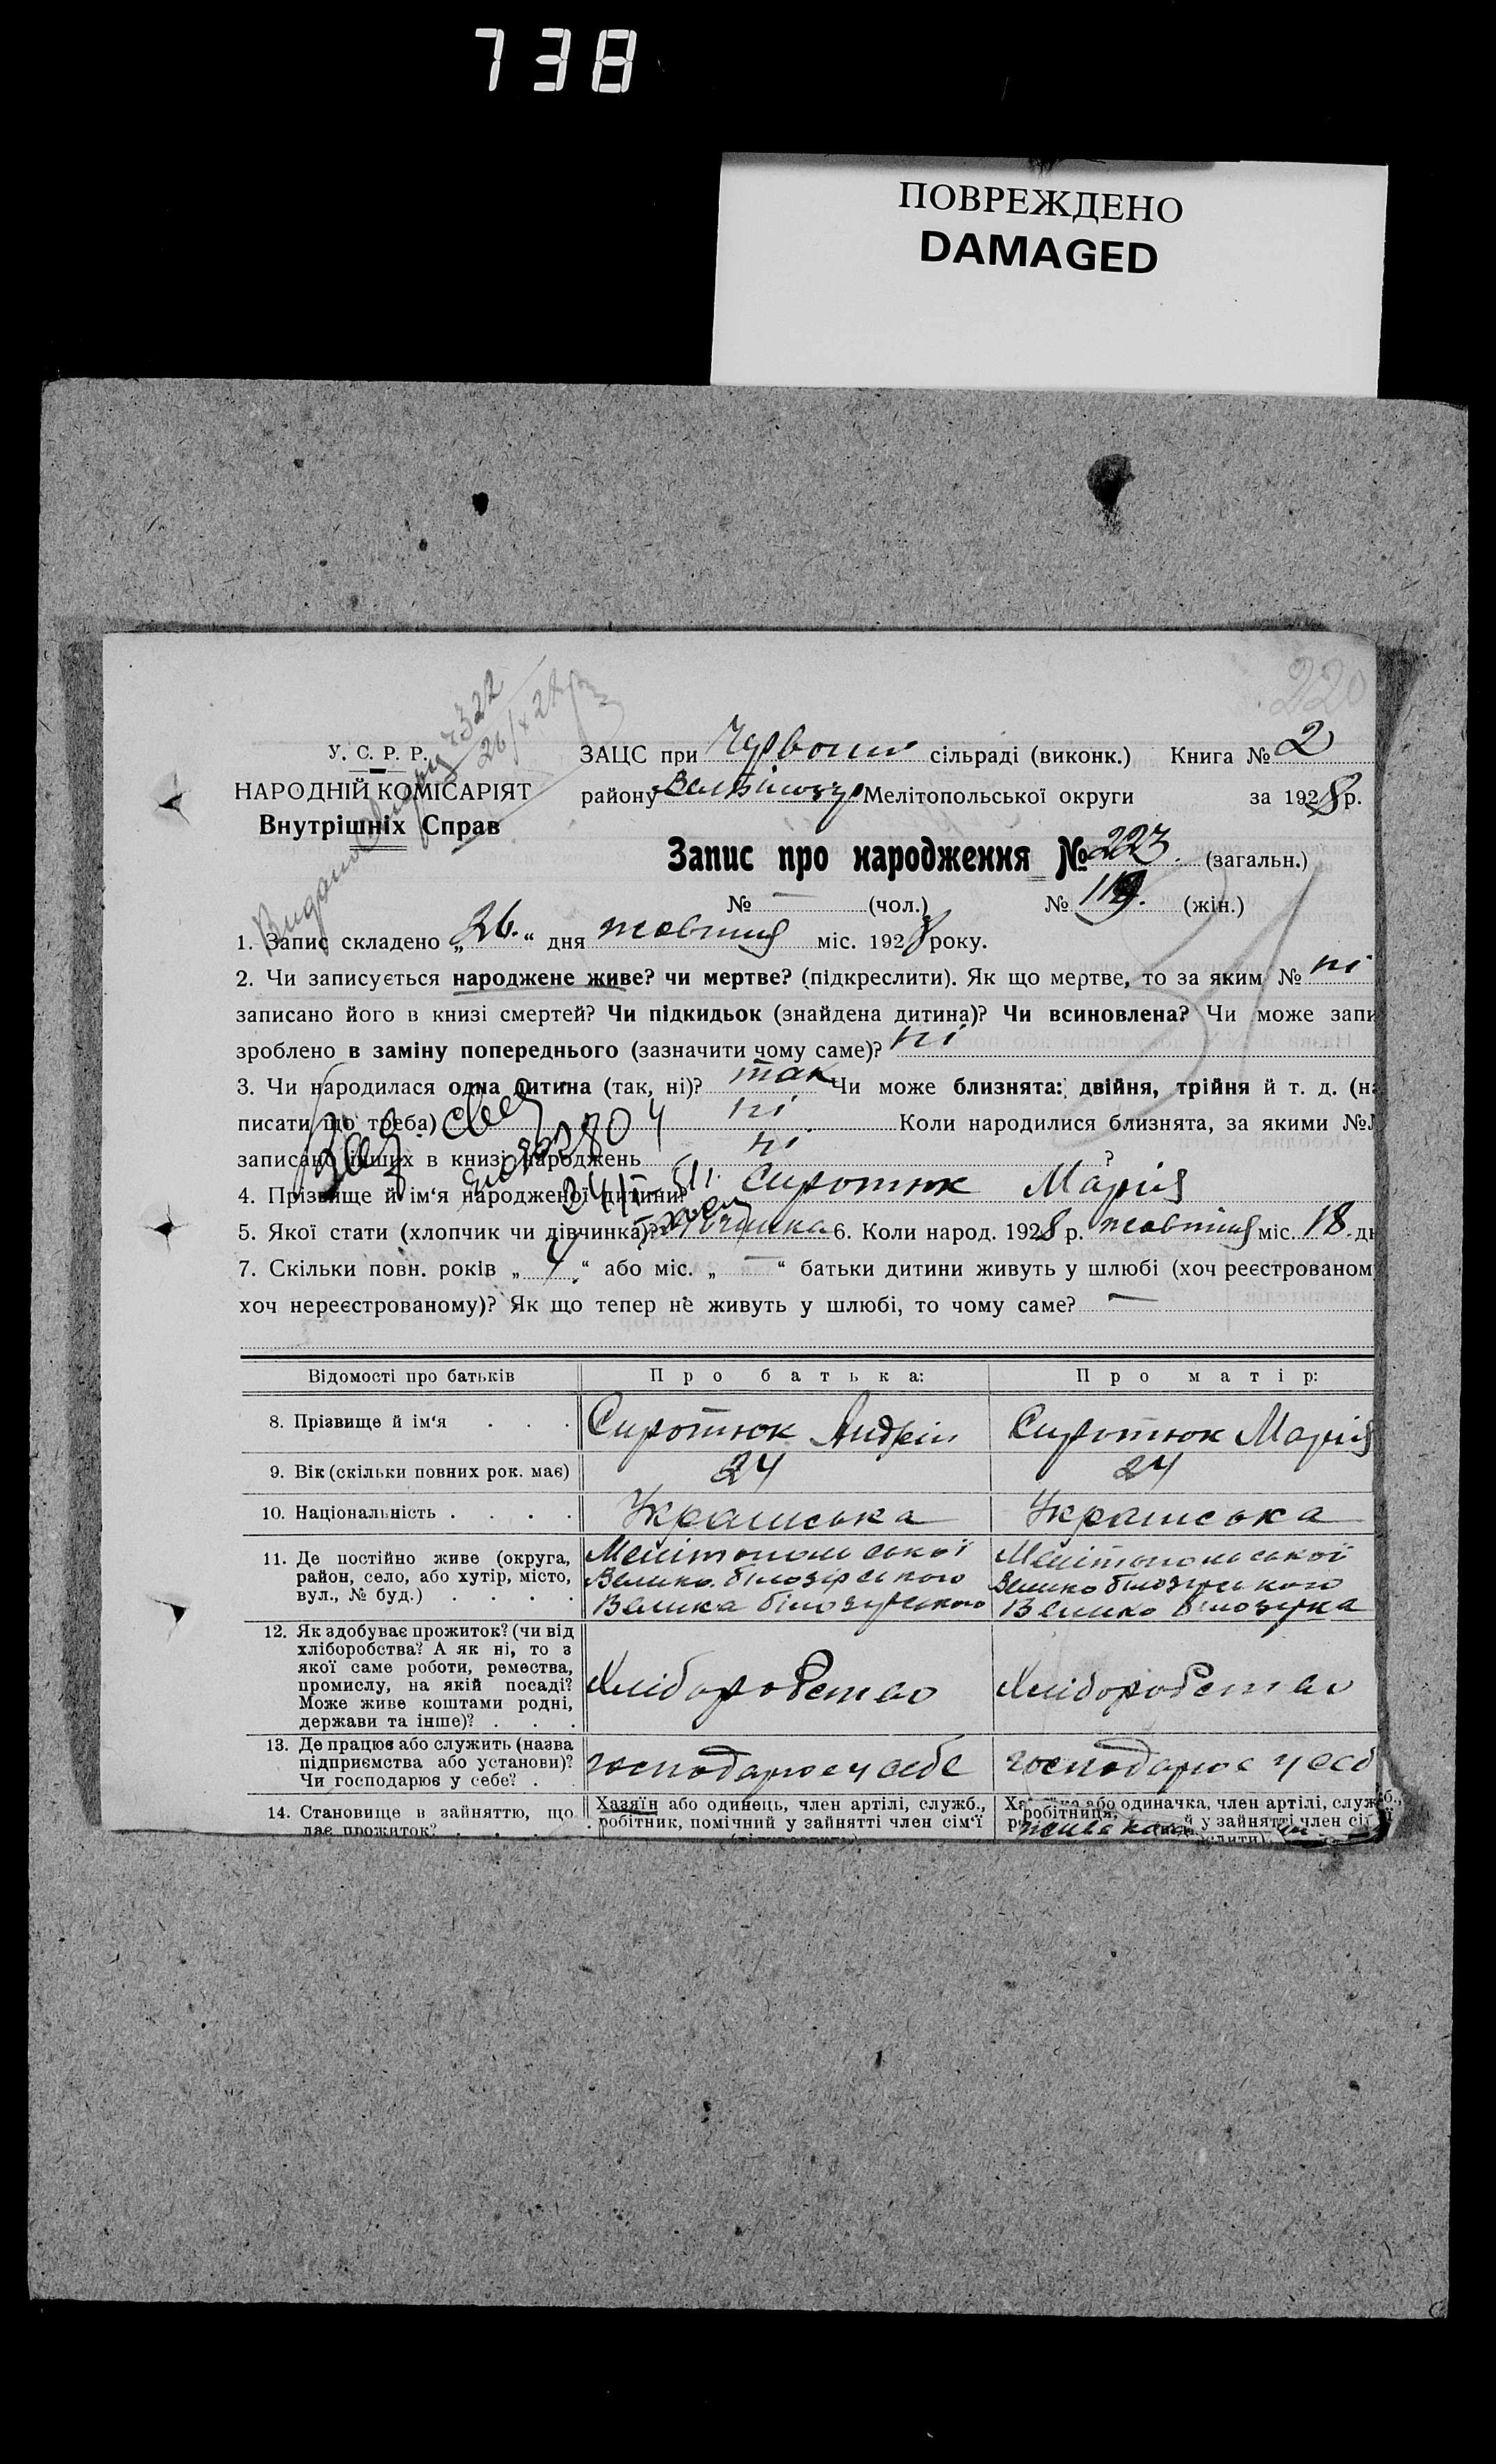 738
ПОВРЕЖДЕНО
DAMAGED
220
У. С. Р. Р.
НАРОДНІЙ КОМІСАРІЯТ
Внутрішніх Справ
ЗАЦС при сільраді (виконк.) Книга № 2
району Мелітопольської округи за 1928 р.
Запис про народження № 223. (загальн.)
№ — (чол.) № 119. (жін.)
1. Запис складено „26.“ дня жовтня міс. 1928 року.
2. Чи записується народжене живе? чи мертве? (підкреслити). Як що мертве, то за яким № ні
записано його в книзі смертей? Чи підкидьок (знайдена дитина)? Чи всиновлена? Чи може запи
зроблено в заміну попереднього (зазначити чому саме)? ні
3. Чи народилася одна дитина (так, ні)? так Чи може близнята: двійня, трійня й т. д. (на
писати що треба) ні Коли народилися близнята, за якими №№
записано інших в книзі народжень ні ?
4. Прізвище й ім‘я народженої дитини? Сиротюк Марія
5. Якої стати (хлопчик чи дівчинка)? дівчинка 6. Коли народ. 1928 р. жовтня міс. 18. дн
7. Скільки повн. років „4“ або міс. „—“ батьки дитини живуть у шлюбі (хоч реєстрованом
хоч нереєстрованому)? Як що тепер не живуть у шлюбі, то чому саме? —
Відомості про батьків Про батька: Про матір:
8. Прізвище й ім‘я . . . Сиротюк Андрій Сиротюк Марія
9. Вік (скільки повних рок. має) 24 24
10. Національність . . . . Українська Українська
11. Де постійно живе (округа, Мелітопольської Мелітопольської
район, село, або хутір, місто, Велико білозірського Велико білозірського
вул., № буд.) . . . . Велика білозірського Велико білозирка
12. Як здобуває прожиток? (чи від
хліборобства? А як ні, то з
якої саме роботи, ремества,
промислу, на якій посаді? Хліборобство Хліборобство
Може живе коштами родні,
держави та інше)? . . .
13. Де працює або служить (назва
підприємства або установи)? господарює у себе господарює у себ
Чи господарює у себе? . .
14. Становище в зайняттю, що Хазяїн або одинець, член артілі, служб., або одиначка, член артілі, служб.,
дає прожиток? . . . робітник, помічний у зайнятті член сім‘ї робітниця, у зайнятті член сі